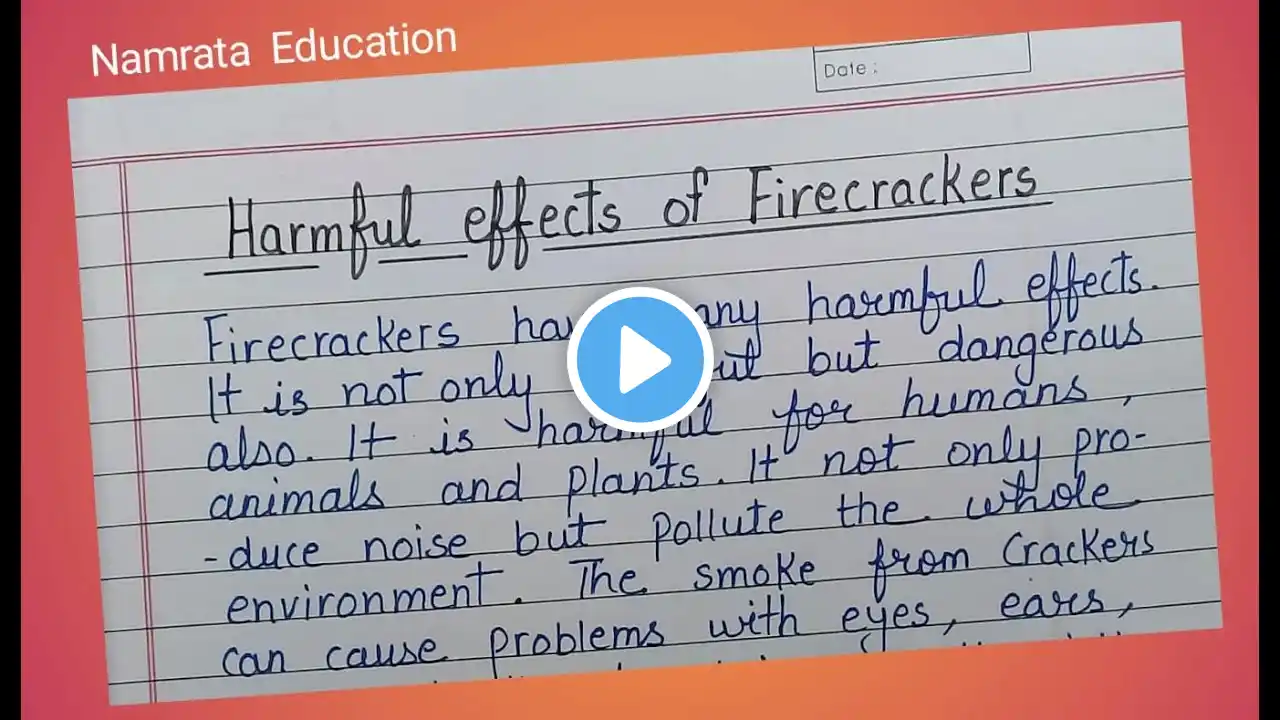 Namrata Education
Date :
Harmful effects of Firecrackers
Firecrackers any harmful effects.
It is not only but dangerous
also. It is harmful for humans,
animals and plants. It not only pro-
-duce noise but pollute the whole
environment. The smoke from Crackers
can cause problems with eyes, ears,